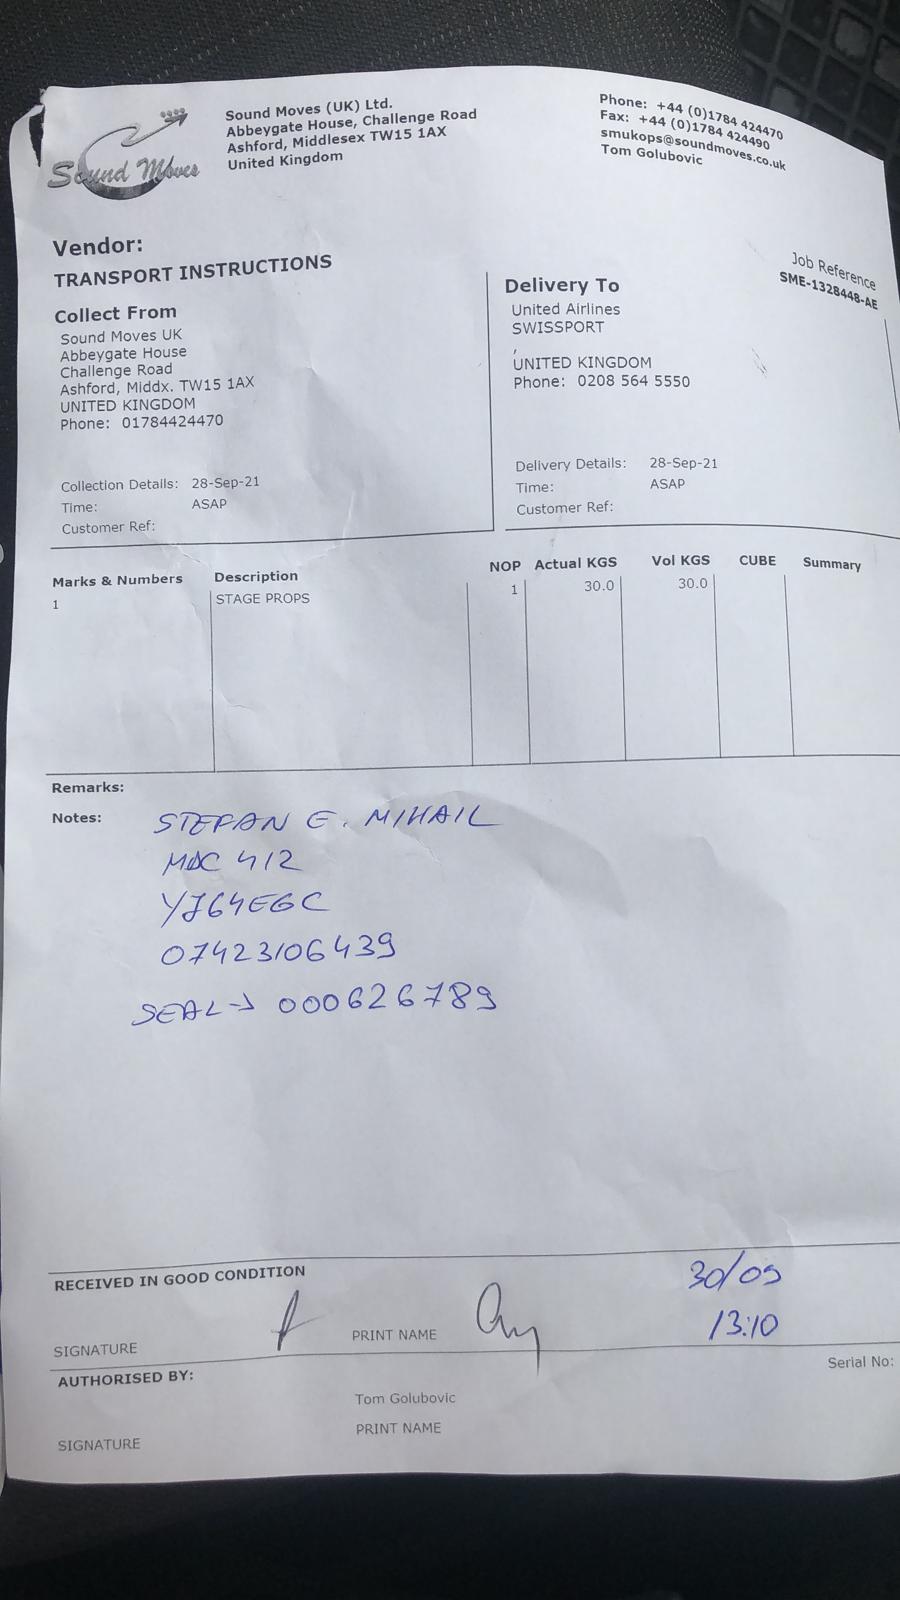 Sound Moves
Sound Moves (UK) Ltd.
Abbeygate House, Challenge Road
Ashford, Middlesex TW15 1AX
United Kingdom
Phone: +44 (0)1784 424470
Fax: +44 (0)1784 424490
smukops@soundmoves.co.uk
Tom Golubovic
Vendor:
TRANSPORT INSTRUCTIONS
Job Reference
SME-1328448-AE
Collect From
Sound Moves UK
Abbeygate House
Challenge Road
Ashford, Middx. TW15 1AX
UNITED KINGDOM
Phone: 01784424470
Collection Details: 28-Sep-21
Time: ASAP
Customer Ref:
Delivery To
United Airlines
SWISSPORT
,
UNITED KINGDOM
Phone: 0208 564 5550
Delivery Details: 28-Sep-21
Time: ASAP
Customer Ref:
Marks & Numbers Description NOP Actual KGS Vol KGS CUBE Summary
1 STAGE PROPS 1 30.0 30.0
Remarks:
Notes: STEFAN E. MIHAIL
MDC 412
YJ64EGC
07423106439
SEAL → 000626789
RECEIVED IN GOOD CONDITION
30/09
13:10
SIGNATURE PRINT NAME
AUTHORISED BY:
Serial No:
Tom Golubovic
SIGNATURE PRINT NAME